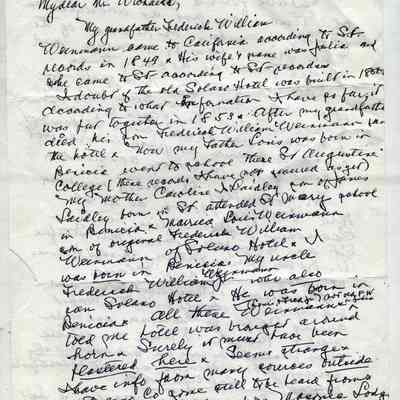 My dear Mr.
My grandfather Frederick William
Weinmann came to California according to St
records in 1849 x His wife's name was Julia and
she came to St according to St records
I doubt if the old Solano Hotel was built in 1800s
according to what information I have so far, it
was put together in 1853 x After my grandfather
died, his son Frederick William Weinmann ran
the hotel x Now my father Louis was born in
Benicia went to school there St Augustine
College (these records I have not secured as yet)
my mother Caroline Laidley dau of James
Laidley born in St attended St Mary school
in Benicia x married Louis Weinmann
son of original Frederick William
Weinmann of Solano Hotel x
was born in Benicia my uncle
Frederick William Weinmann who also
ran Solano Hotel x He was born in
Benicia x All these Weinmanns
told me hotel was brought around
horn x Surely it must have been
plastered here x Seems strange x
I have info from many sources outside
some still to be heard from
Masonic Lodge